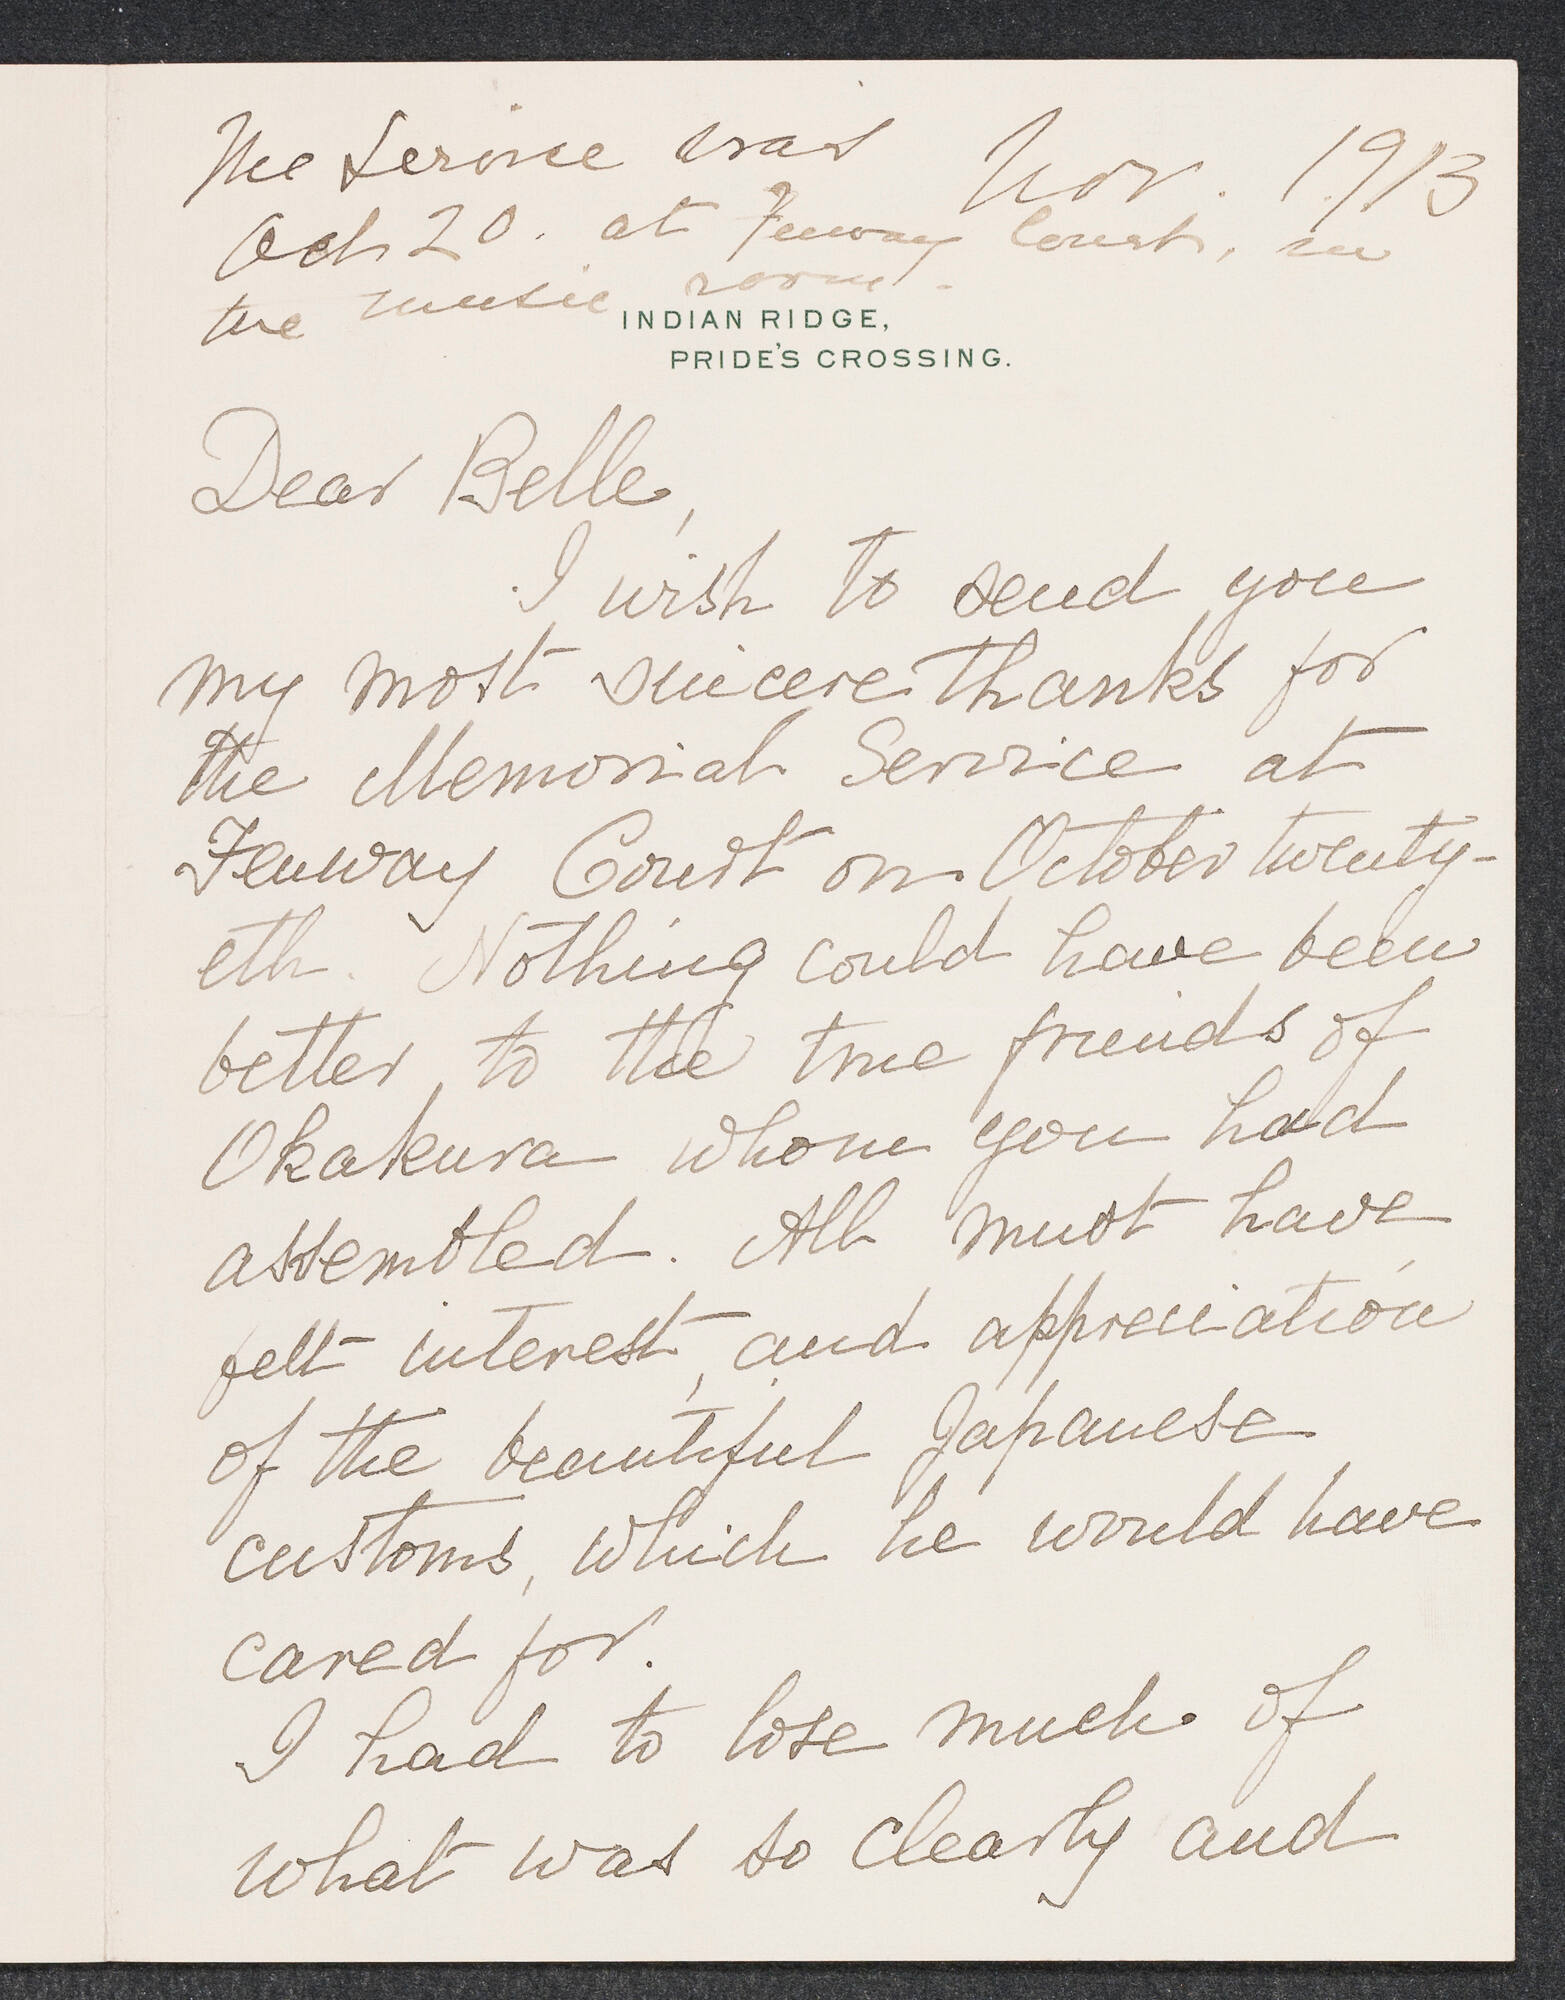 The Service was Nov. 1913
Oct 20. at Fenway Court, in
the music room.
INDIAN RIDGE,
PRIDE'S CROSSING.
Dear Belle,
I wish to send you
my most sincere thanks for
the Memorial Service at
Fenway Court on October twenty-
eth. Nothing could have been
better, to the true friends of
Okakura whom you had
assembled. All must have
felt interest, and appreciation
of the beautiful Japanese
customs, which he would have
cared for.
I had to lose much of
what was so clearly and